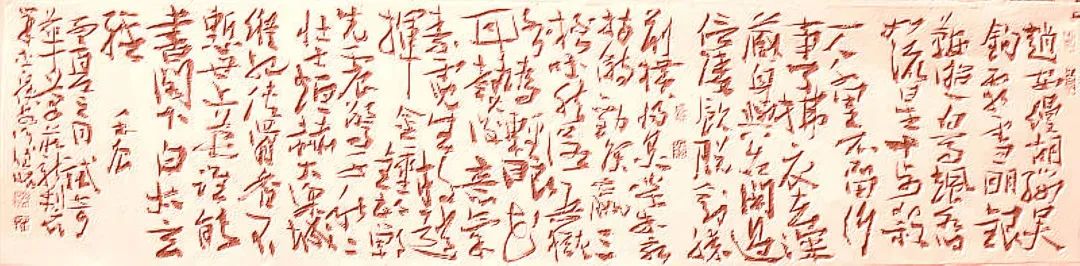 趙客縵胡纓吴
鈎霜雪明銀
鞍照白馬颯沓
如流星十步殺
一人千里不留行
事了拂衣去深
藏身與名閑過
信陵飲脱劍膝
前横將炙啖朱亥
持觴勸侯嬴三
杯吐然諾五嶽
倒為輕眼花
耳熱後意氣
素霓生救趙
揮金錘邯鄲
先震驚千秋二
壮士烜赫大梁城
縱死俠骨香不
慚世上英誰能
書閣下白首太玄
經